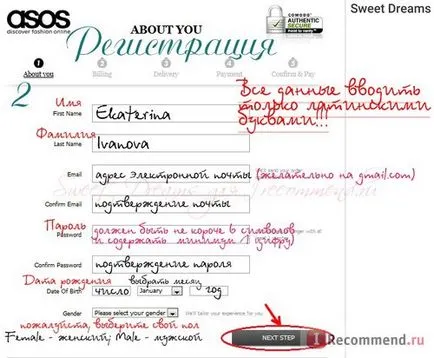 asos
discover fashion online
ABOUT YOU
Регистрация
COMODO
AUTHENTIC
& SECURE
Sweet Dreams
1 2 3 4 5
About you Billing Delivery Payment Confirm & Pay
2
Все данные вводить
только латинскими
буквами!!!
Имя
First Name
Ekaterina
Фамилия
Last Name
Ivanova
Email
адрес электронной почты (желательно на gmail.com)
Confirm Email
подтверждение почты
Пароль
Password
должен быть не короче 6 символов
и содержать минимум 1 цифру)
Confirm Password
подтверждение пароля
Дата рождения выбрать месяц
Date Of Birth число January год
Gender Please select your gender We'll tailor your experience for you.
пожалуйста, выберите свой пол
Female - женский; Male - мужской
NEXT STEP
IRecommend.ru